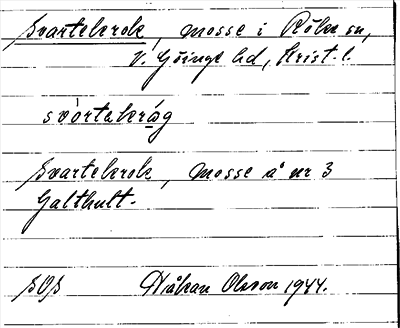 Svartekrok, mosse i Röke sn,
V. Göinge hd, Krist. l.
svártekråg
Svartekrok, mosse å nr 3
Galthult.
SOS Håkan Olsson 1944.